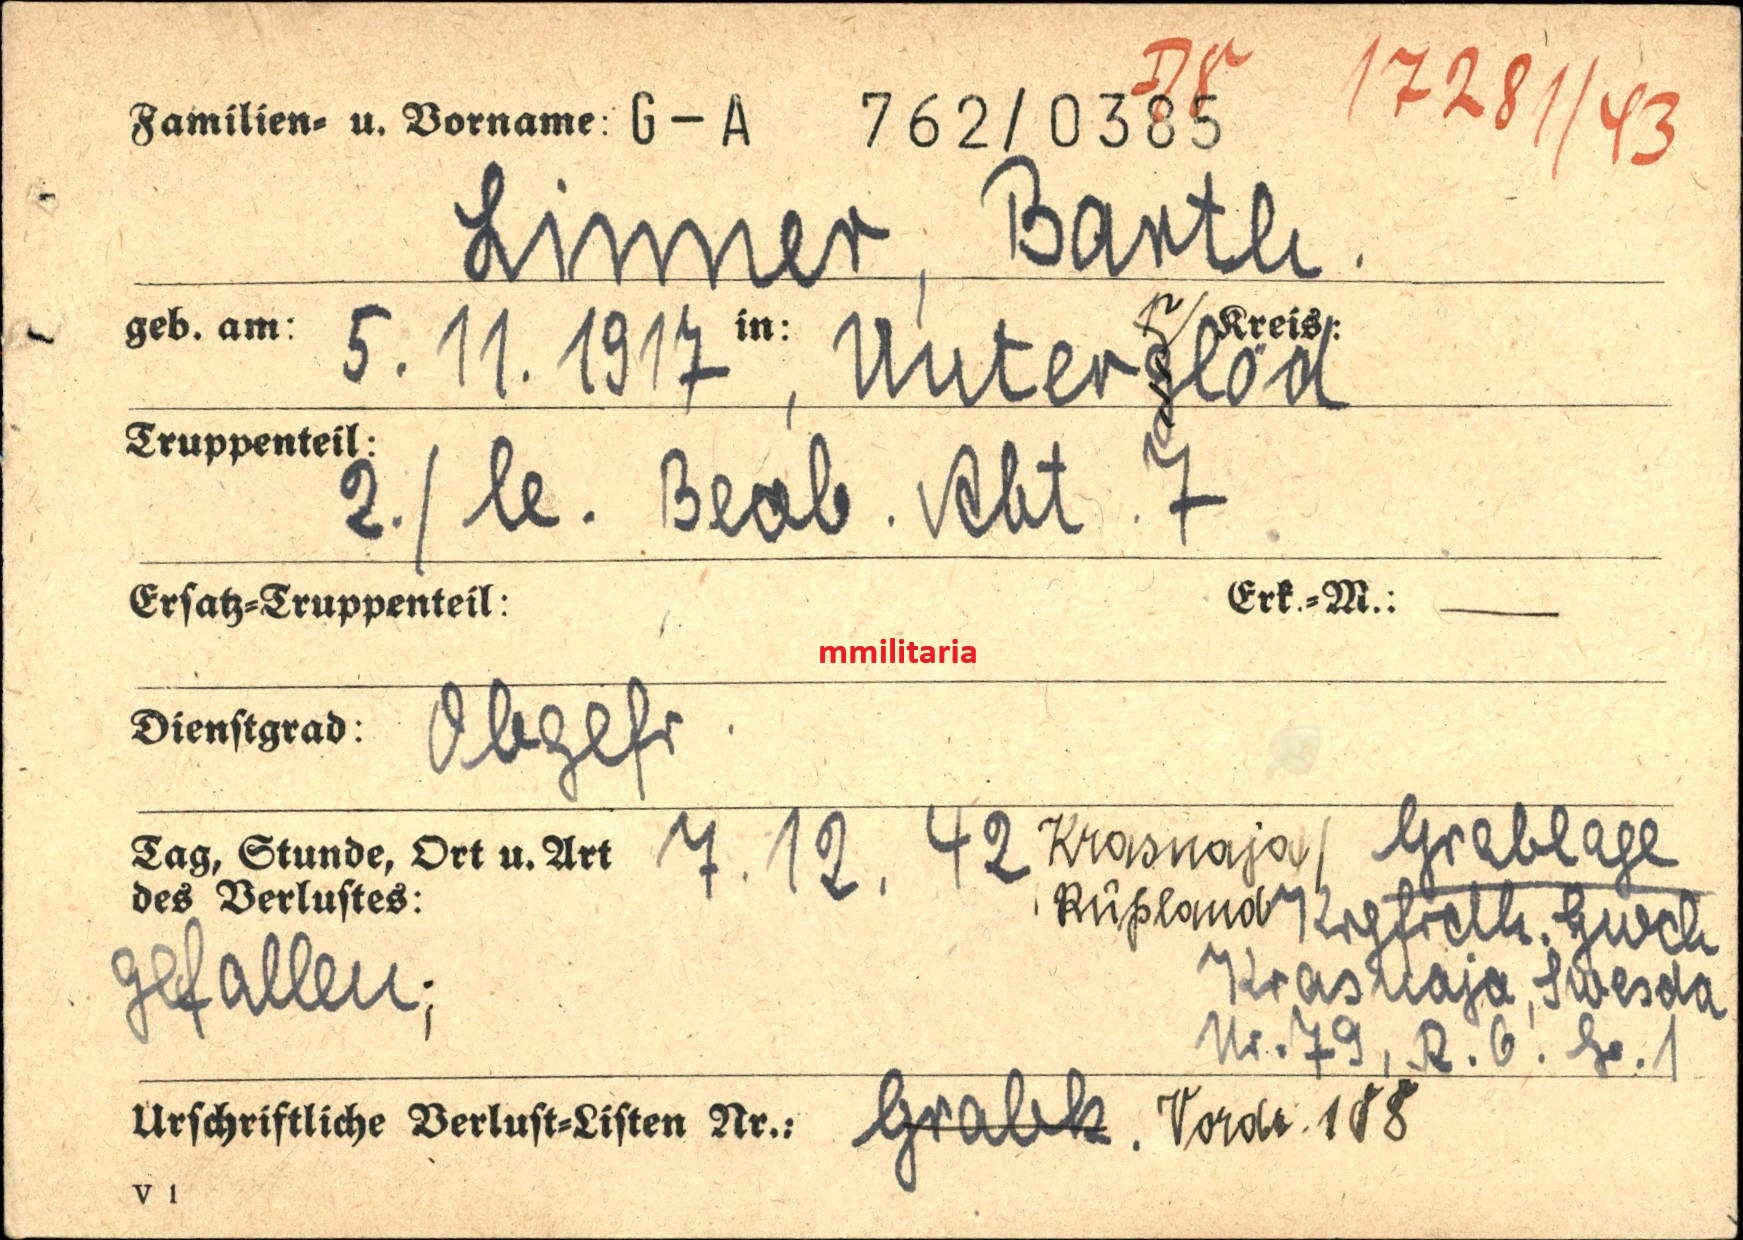 17281/43
Familien- u. Vorname: G-A 762/0385
Limmer, Barth.
geb. am: 5. 11. 1917, in: Unterglöd Kreis:
Truppenteil: 2./ le. Beob. Abt. 7
Ersatz-Truppenteil: Erk.-M.: —
mmilitaria
Dienstgrad: Obgefr.
Tag, Stunde, Ort u. Art 7. 12. 42 Krasnaja/ Grablage
des Verlustes: Rußland Krgfrdh.
gefallen; Krasnaja, Swesda
Nr. 79, R. 6. Gr. 1
Urschriftliche Verlust-Listen Nr.: Grabk. Vordr. 188
V 1